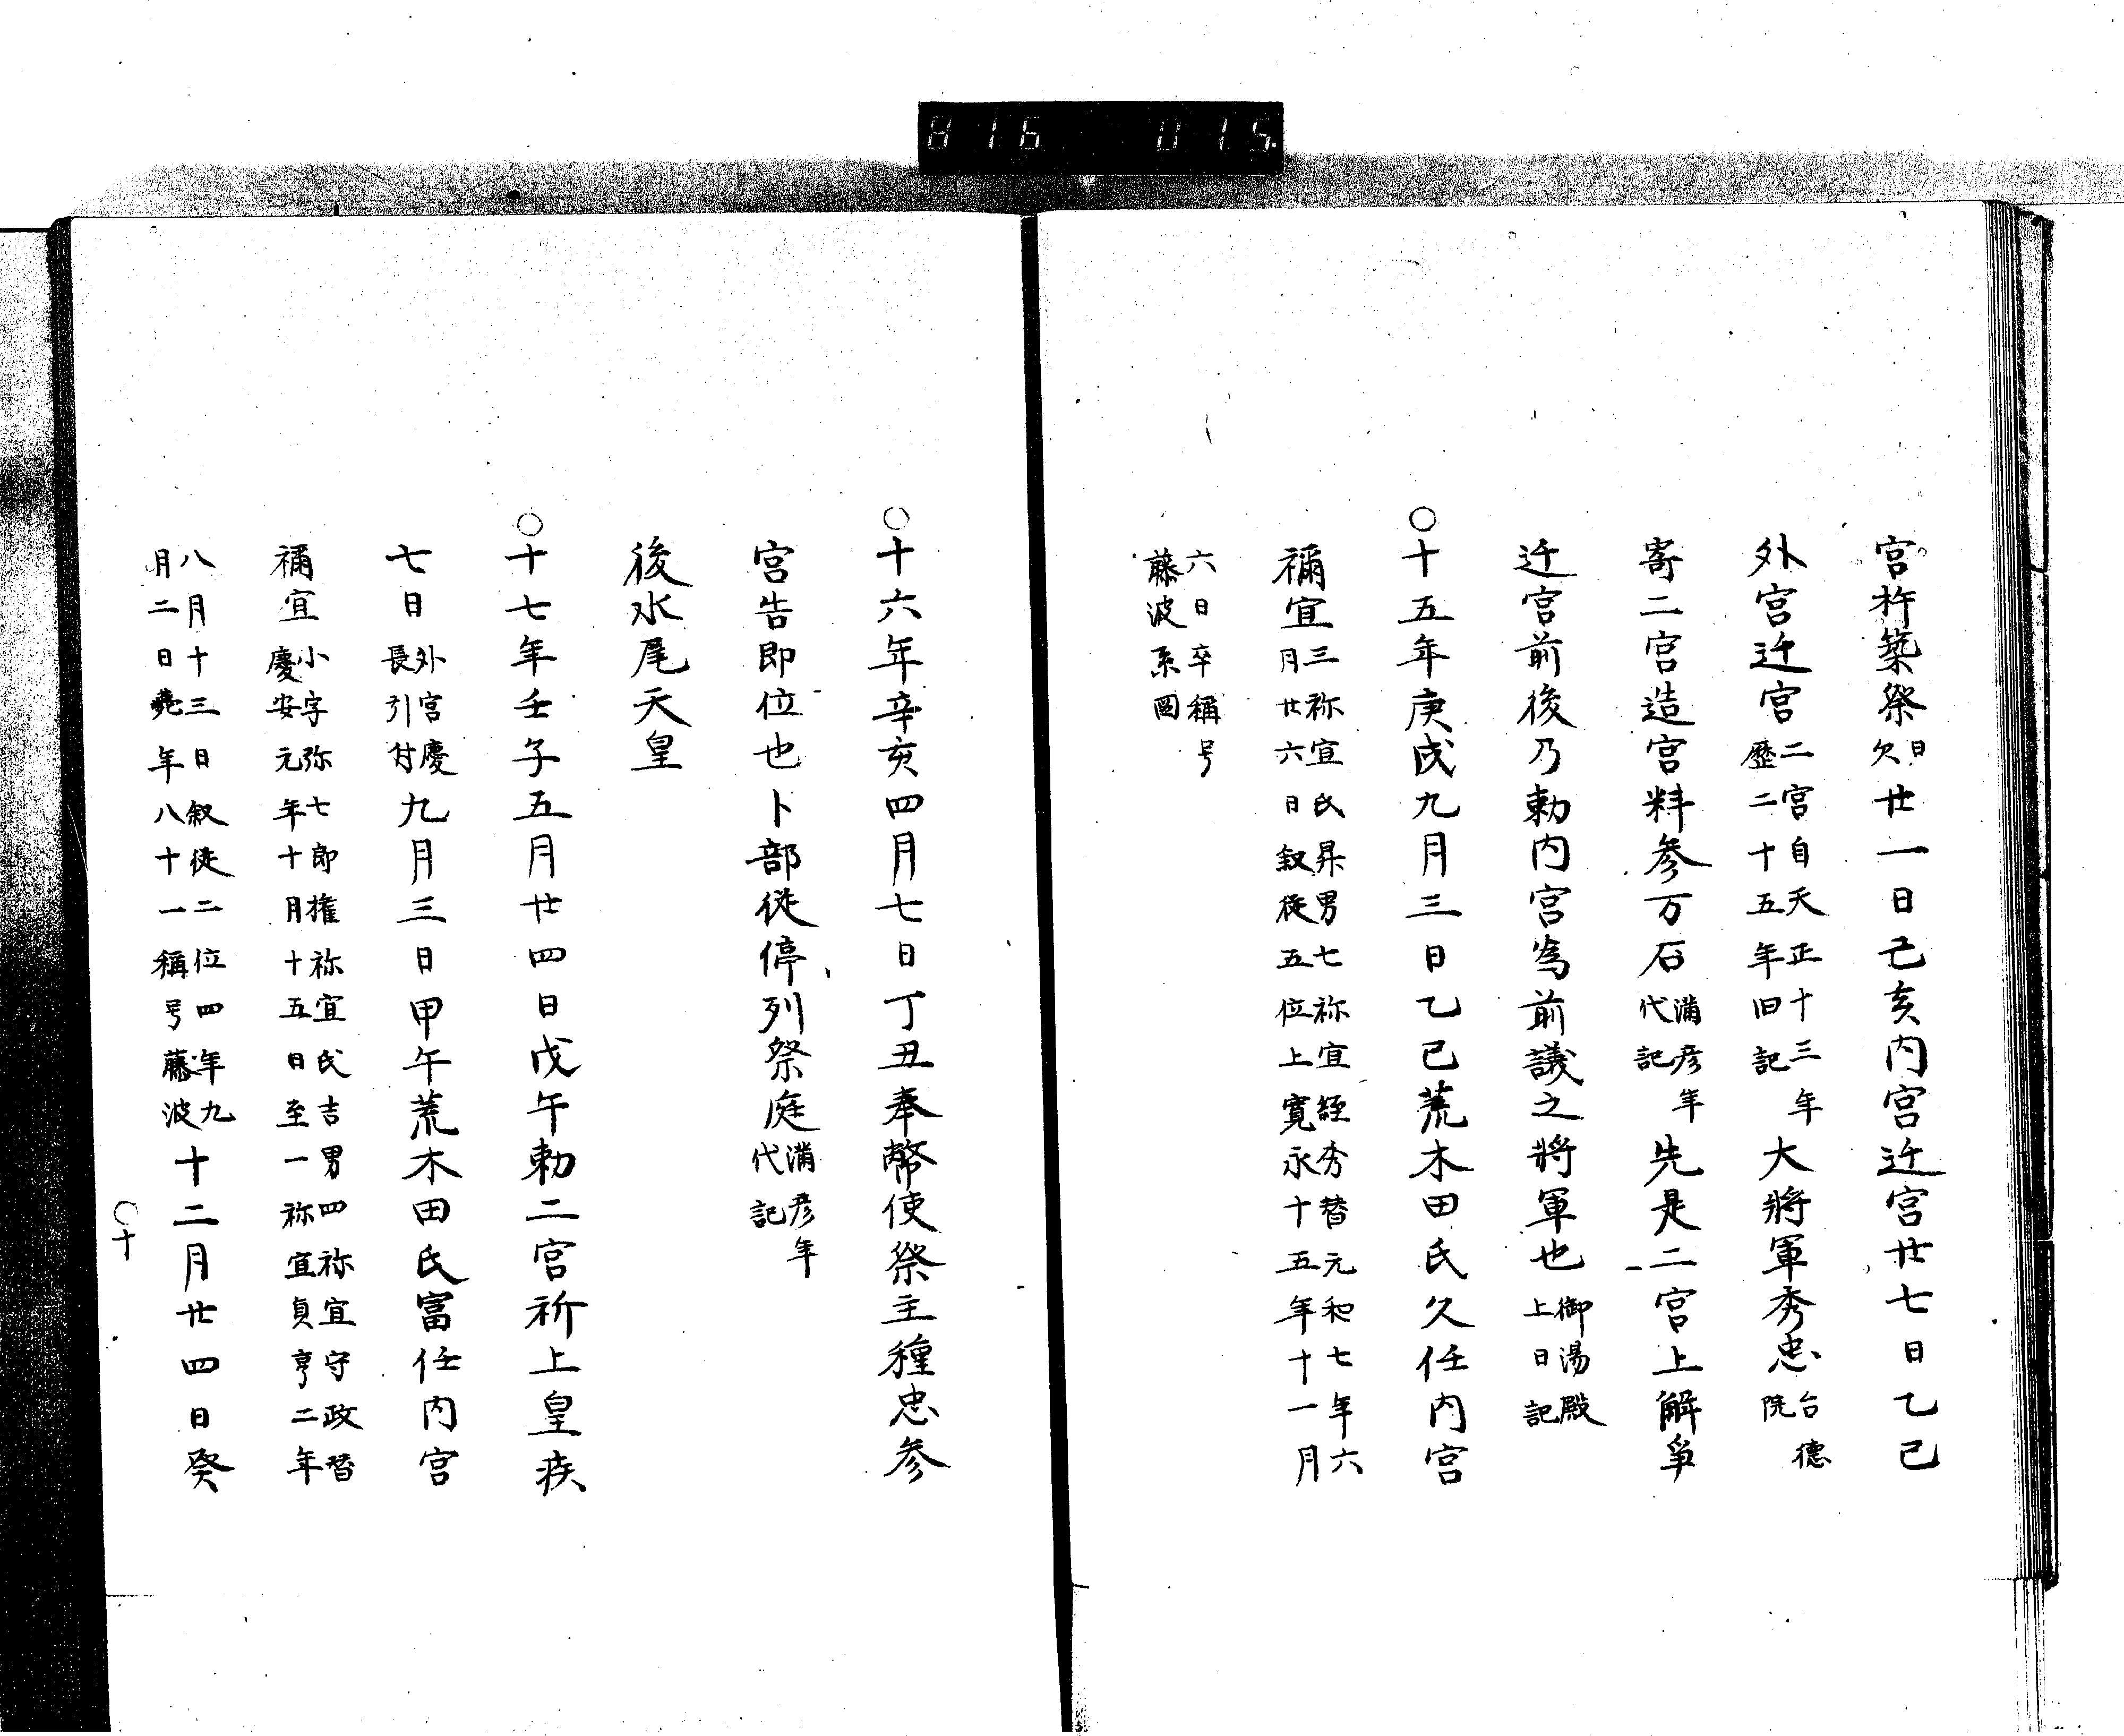 816 015
宮杵築祭日欠廿一日己亥内宮迁宮廿七日乙巳
外宮迁宮二宮自天正十三年歴二十五年旧記大將軍秀忠台德院
寄二宮造宮料参万石満彦年代記先是二宮上解爭
迁宮前後乃勅内宮為前議之將軍也御湯殿上日記
○十五年庚戌九月三日乙巳荒木田氏久任内宮
禰宜三祢宜氏昇男七祢宜経秀替元和七年六月廿六日叙従五位上寛永十五年十一月
六日卒稱号藤波系圖
○十六年辛亥四月七日丁丑奉幣使祭主種忠参
宮告即位也卜部従停列祭庭満彦年代記
後水尾天皇
○十七年壬子五月廿四日戊午勅二宮祈上皇疾
七日外宮慶長引付九月三日甲午荒木田氏富任内宮
禰宜小字弥七郎権祢宜氏吉男四祢宜守政替慶安元年十月十五日至一祢宜貞享二年
八月十三日叙従二位四年九月二日薨年八十一稱号藤波十二月廿四日癸
○十